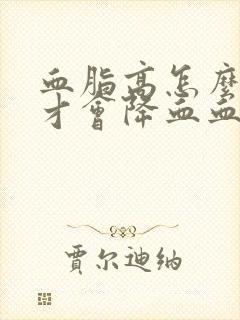 血脂高怎麼
才會降血血
賈尔迪纳